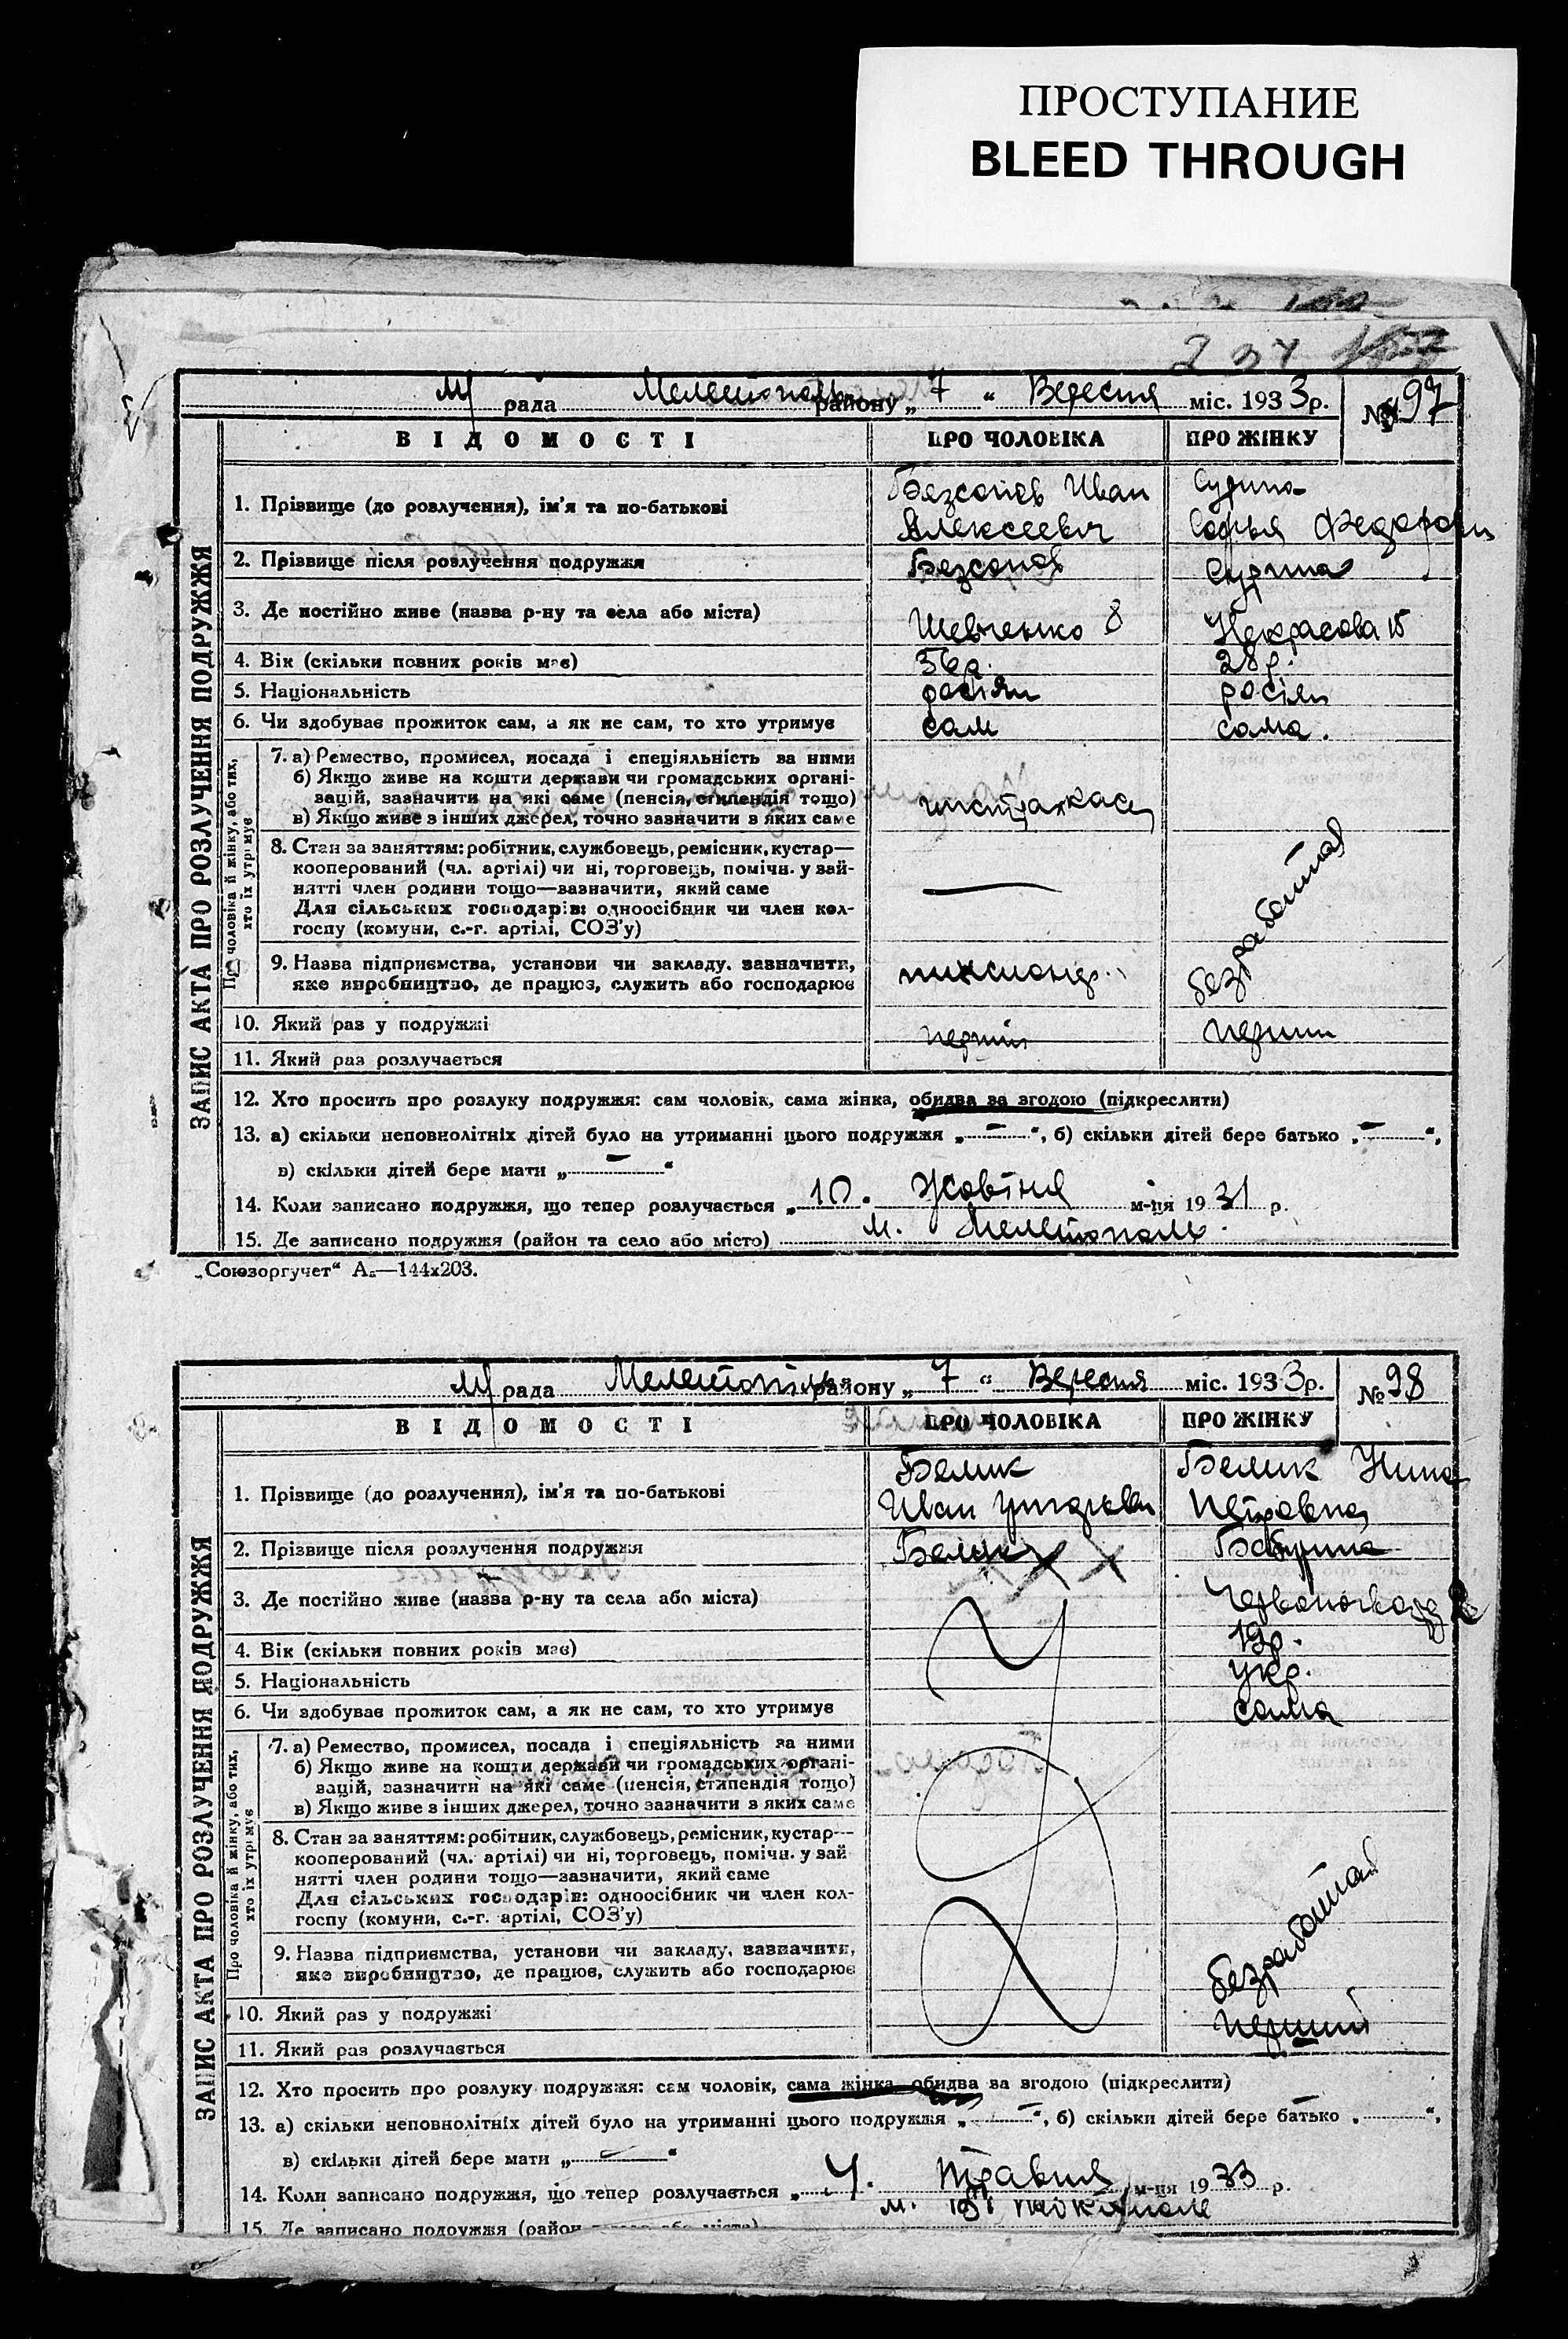 ПРОСТУПАНИЕ
BLEED THROUGH
рада району „ 7 “ Вересня міс. 1933 р. № 97
ВІДОМОСТІ ПРО ЧОЛОВІКА ПРО ЖІНКУ
ЗАПИС АКТА ПРО РОЗЛУЧЕННЯ ПОДРУЖЖЯ
1. Прізвище (до розлучення), ім'я та по-батькові Иван
Алексеевич Софья
2. Прізвище після розлучення подружжя Безсонов
3. Де постійно живе (назва р-ну та села або міста) Шевченко 8 Некрасова 15
4. Вік (скільки повних років має) 28 р.
5. Національність росіян росіян
6. Чи здобуває прожиток сам, а як не сам, то хто утримує сам сама.
Про чоловіка й жінку, або тих,
хто їх утримує
7. а) Ремество, промисел, посада і спеціяльність за ними
б) Якщо живе на кошти держави чи громадських органі-
зацій, зазначити на які саме (пенсія, стипендія тощо)
в) Якщо живе з інших джерел, точно зазначити з яких саме
8. Стан за заняттям: робітник, службовець, ремісник, кустар—
кооперований (чл. артілі) чи ні, торговець, помічн. у зай-
нятті член родини тощо—зазначити, який саме
Для сільських господарів: одноосібник чи член кол-
госпу (комуни, с.-г. артілі, СОЗ'у)
9. Назва підприємства, установи чи закладу, зазначити,
яке виробництво, де працює, служить або господарює
безработная
10. Який раз у подружжі
11. Який раз розлучається
12. Хто просить про розлуку подружжя: сам чоловік, сама жінка, обидва за згодою (підкреслити)
13. а) скільки неповнолітніх дітей було на утриманні цього подружжя „ — “, б) скільки дітей бере батько „ — “,
в) скільки дітей бере мати „ — “
14. Коли записано подружжя, що тепер розлучається „ 10. Жовтня м-ця 1931 р.
15. Де записано подружжя (район та село або місто) м. Мелетополь
„Союзоргучет“ А₅—144х203.
рада району „ 7 “ Вересня міс. 1933 р. № 98
ВІДОМОСТІ ПРО ЧОЛОВІКА ПРО ЖІНКУ
ЗАПИС АКТА ПРО РОЗЛУЧЕННЯ ПОДРУЖЖЯ
1. Прізвище (до розлучення), ім'я та по-батькові Белик Белик Нина
Иван Петровна
2. Прізвище після розлучення подружжя Белик
3. Де постійно живе (назва р-ну та села або міста)
4. Вік (скільки повних років має) 19 р.
5. Національність укр.
6. Чи здобуває прожиток сам, а як не сам, то хто утримує сама
Про чоловіка й жінку, або тих,
хто їх утримує
7. а) Ремество, промисел, посада і спеціяльність за ними
б) Якщо живе на кошти держави чи громадських органі-
зацій, зазначити на які саме (пенсія, стипендія тощо)
в) Якщо живе з інших джерел, точно зазначити з яких саме
8. Стан за заняттям: робітник, службовець, ремісник, кустар—
кооперований (чл. артілі) чи ні, торговець, помічн. у зай
нятті член родини тощо—зазначити, який саме
Для сільських господарів: одноосібник чи член кол-
госпу (комуни, с.-г. артілі, СОЗ'у)
9. Назва підприємства, установи чи закладу, зазначити,
яке виробництво, де працює, служить або господарює
безработная
10. Який раз у подружжі
11. Який раз розлучається
12. Хто просить про розлуку подружжя: сам чоловік, сама жінка, обидва за згодою (підкреслити)
13. а) скільки неповнолітніх дітей було на утриманні цього подружжя „ — “, б) скільки дітей бере батько „ — “,
в) скільки дітей бере мати „ — “
14. Коли записано подружжя, що тепер розлучається „ Травня м-ця 1933 р.
15. Де записано подружжя (район м.